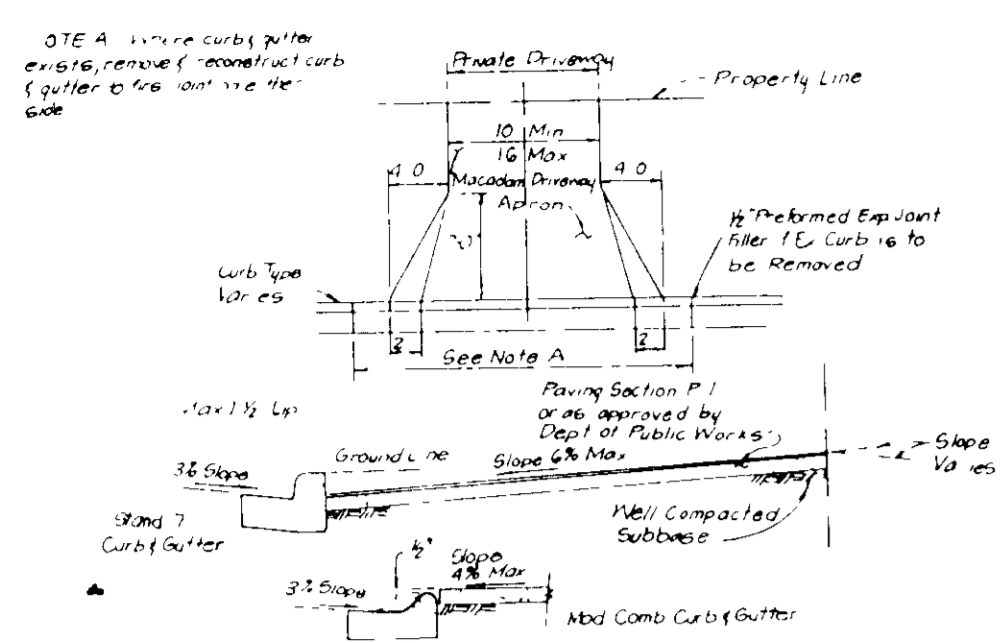 OTE A Where curb & gutter
exists, remove & reconstruct curb
& gutter to the
side
Private Driveway
Property Line
10 Min
16 Max
4 0
4 0
Macadam Driveway
Apron
1/2" Preformed Exp Joint
Filler Ex Curb is to
be Removed
Curb Type
Var es
2
2
See Note A
Max 1 1/2 Lip
Paving Section P 1
or as approved by
Dept of Public Works
Ground Line
Slope 6% Max
Slope
Va ies
3% Slope
Stand 7
Curb & Gutter
Well Compacted
Subbase
1/2"
Slope
4% Max
3% Slope
Mod Comb Curb & Gutter